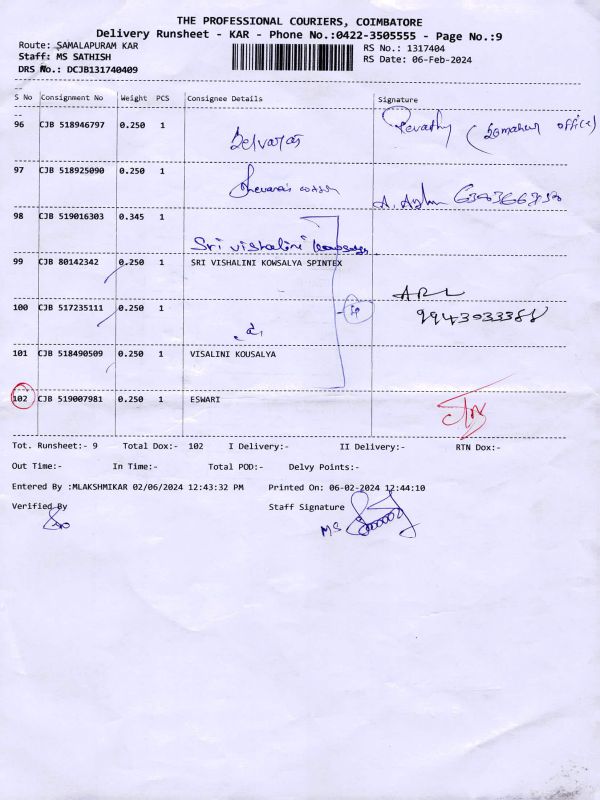 THE PROFESSIONAL COURIERS, COIMBATORE
Delivery Runsheet - KAR - Phone No.:0422-3505555 - Page No.:9
Route: SAMALAPURAM KAR RS No.: 1317404
Staff: MS SATHISH RS Date: 06-Feb-2024
DRS No.: DCJB131740409
S No Consignment No Weight PCS Consignee Details Signature
96 CJB 518946797 0.250 1 Selvaraj Revathy ( office)
97 CJB 518925090 0.250 1
98 CJB 519016303 0.345 1 Sri vishalini kowsalya
99 CJB 80142342 0.250 1 SRI VISHALINI KOWSALYA SPINTEX
100 CJB 517235111 0.250 1 d,
101 CJB 518490509 0.250 1 VISALINI KOUSALYA
102 CJB 519007981 0.250 1 ESWARI
Tot. Runsheet:- 9 Total Dox:- 102 I Delivery:- II Delivery:- RTN Dox:-
Out Time:- In Time:- Total POD:- Delvy Points:-
Entered By :MLAKSHMIKAR 02/06/2024 12:43:32 PM Printed On: 06-02-2024 12:44:10
Verified By Staff Signature
MS